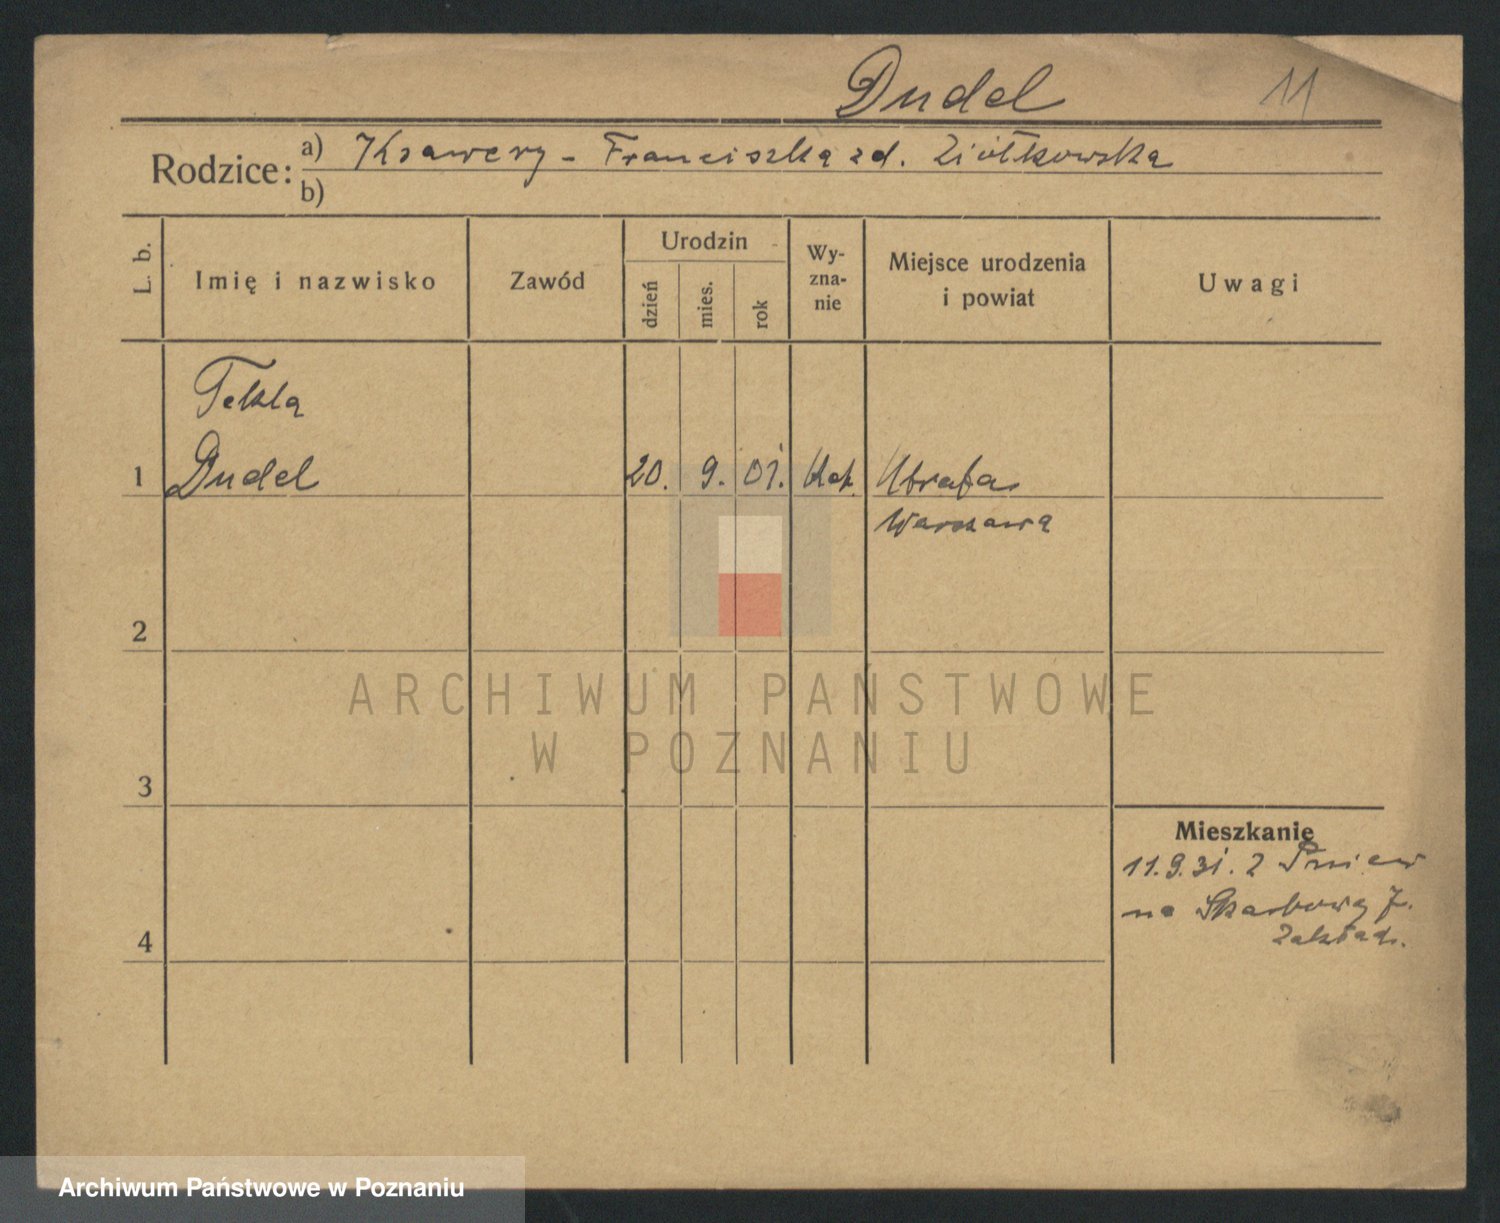 Dudel 11
Rodzice: a) Ksawery - Franciszka zd. Ziółkowska
b)
L. b.
Imię i nazwisko
Zawód
Urodzin
dzień
mies.
rok
Wy-
zna-
nie
Miejsce urodzenia
i powiat
Uwagi
Tekla
1 Dudel 20. 9. 01. kat.
Warszawa
2
ARCHIWUM PAŃSTWOWE
W POZNANIU
3
Mieszkanie
11.9.31. z Pniew
na Skarbową 7.
Zakład.
4
Archiwum Państwowe w Poznaniu